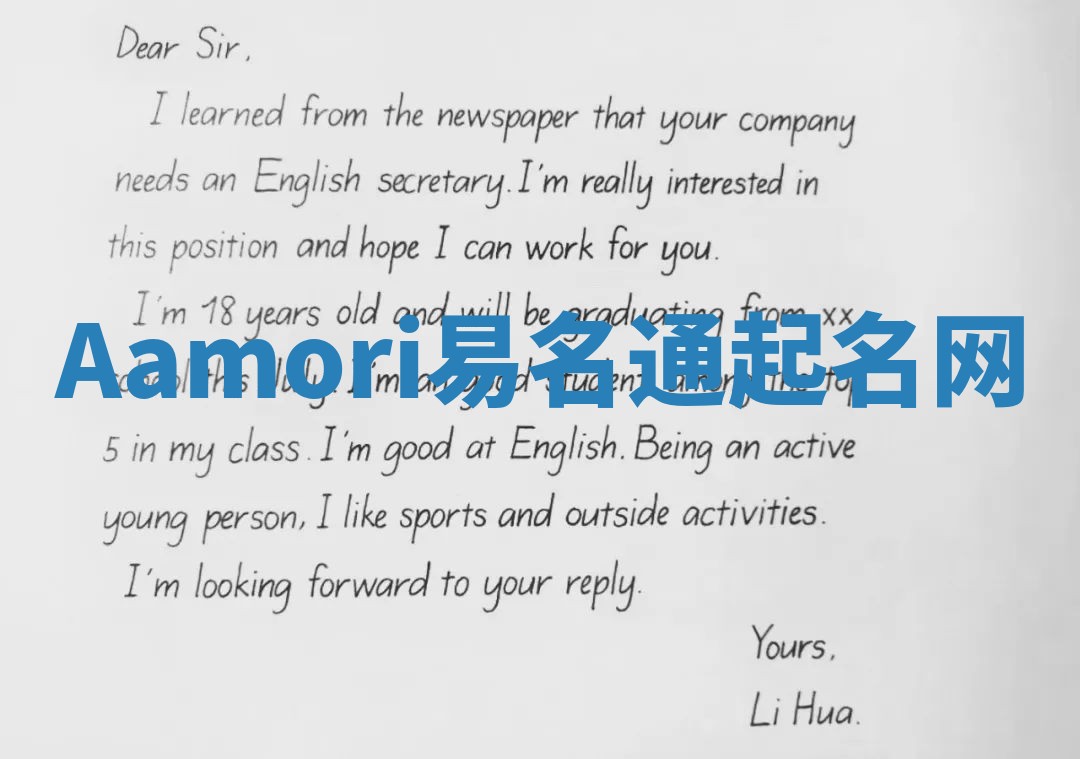 Dear Sir,
I learned from the newspaper that your company
needs an English secretary. I'm really interested in
this position and hope I can work for you.
I'm 18 years old and will be graduating from xx
Aamori易名通起名网
school this July. I'm an good student among the top
5 in my class. I'm good at English. Being an active
young person, I like sports and outside activities.
I'm looking forward to your reply.
Yours,
Li Hua.